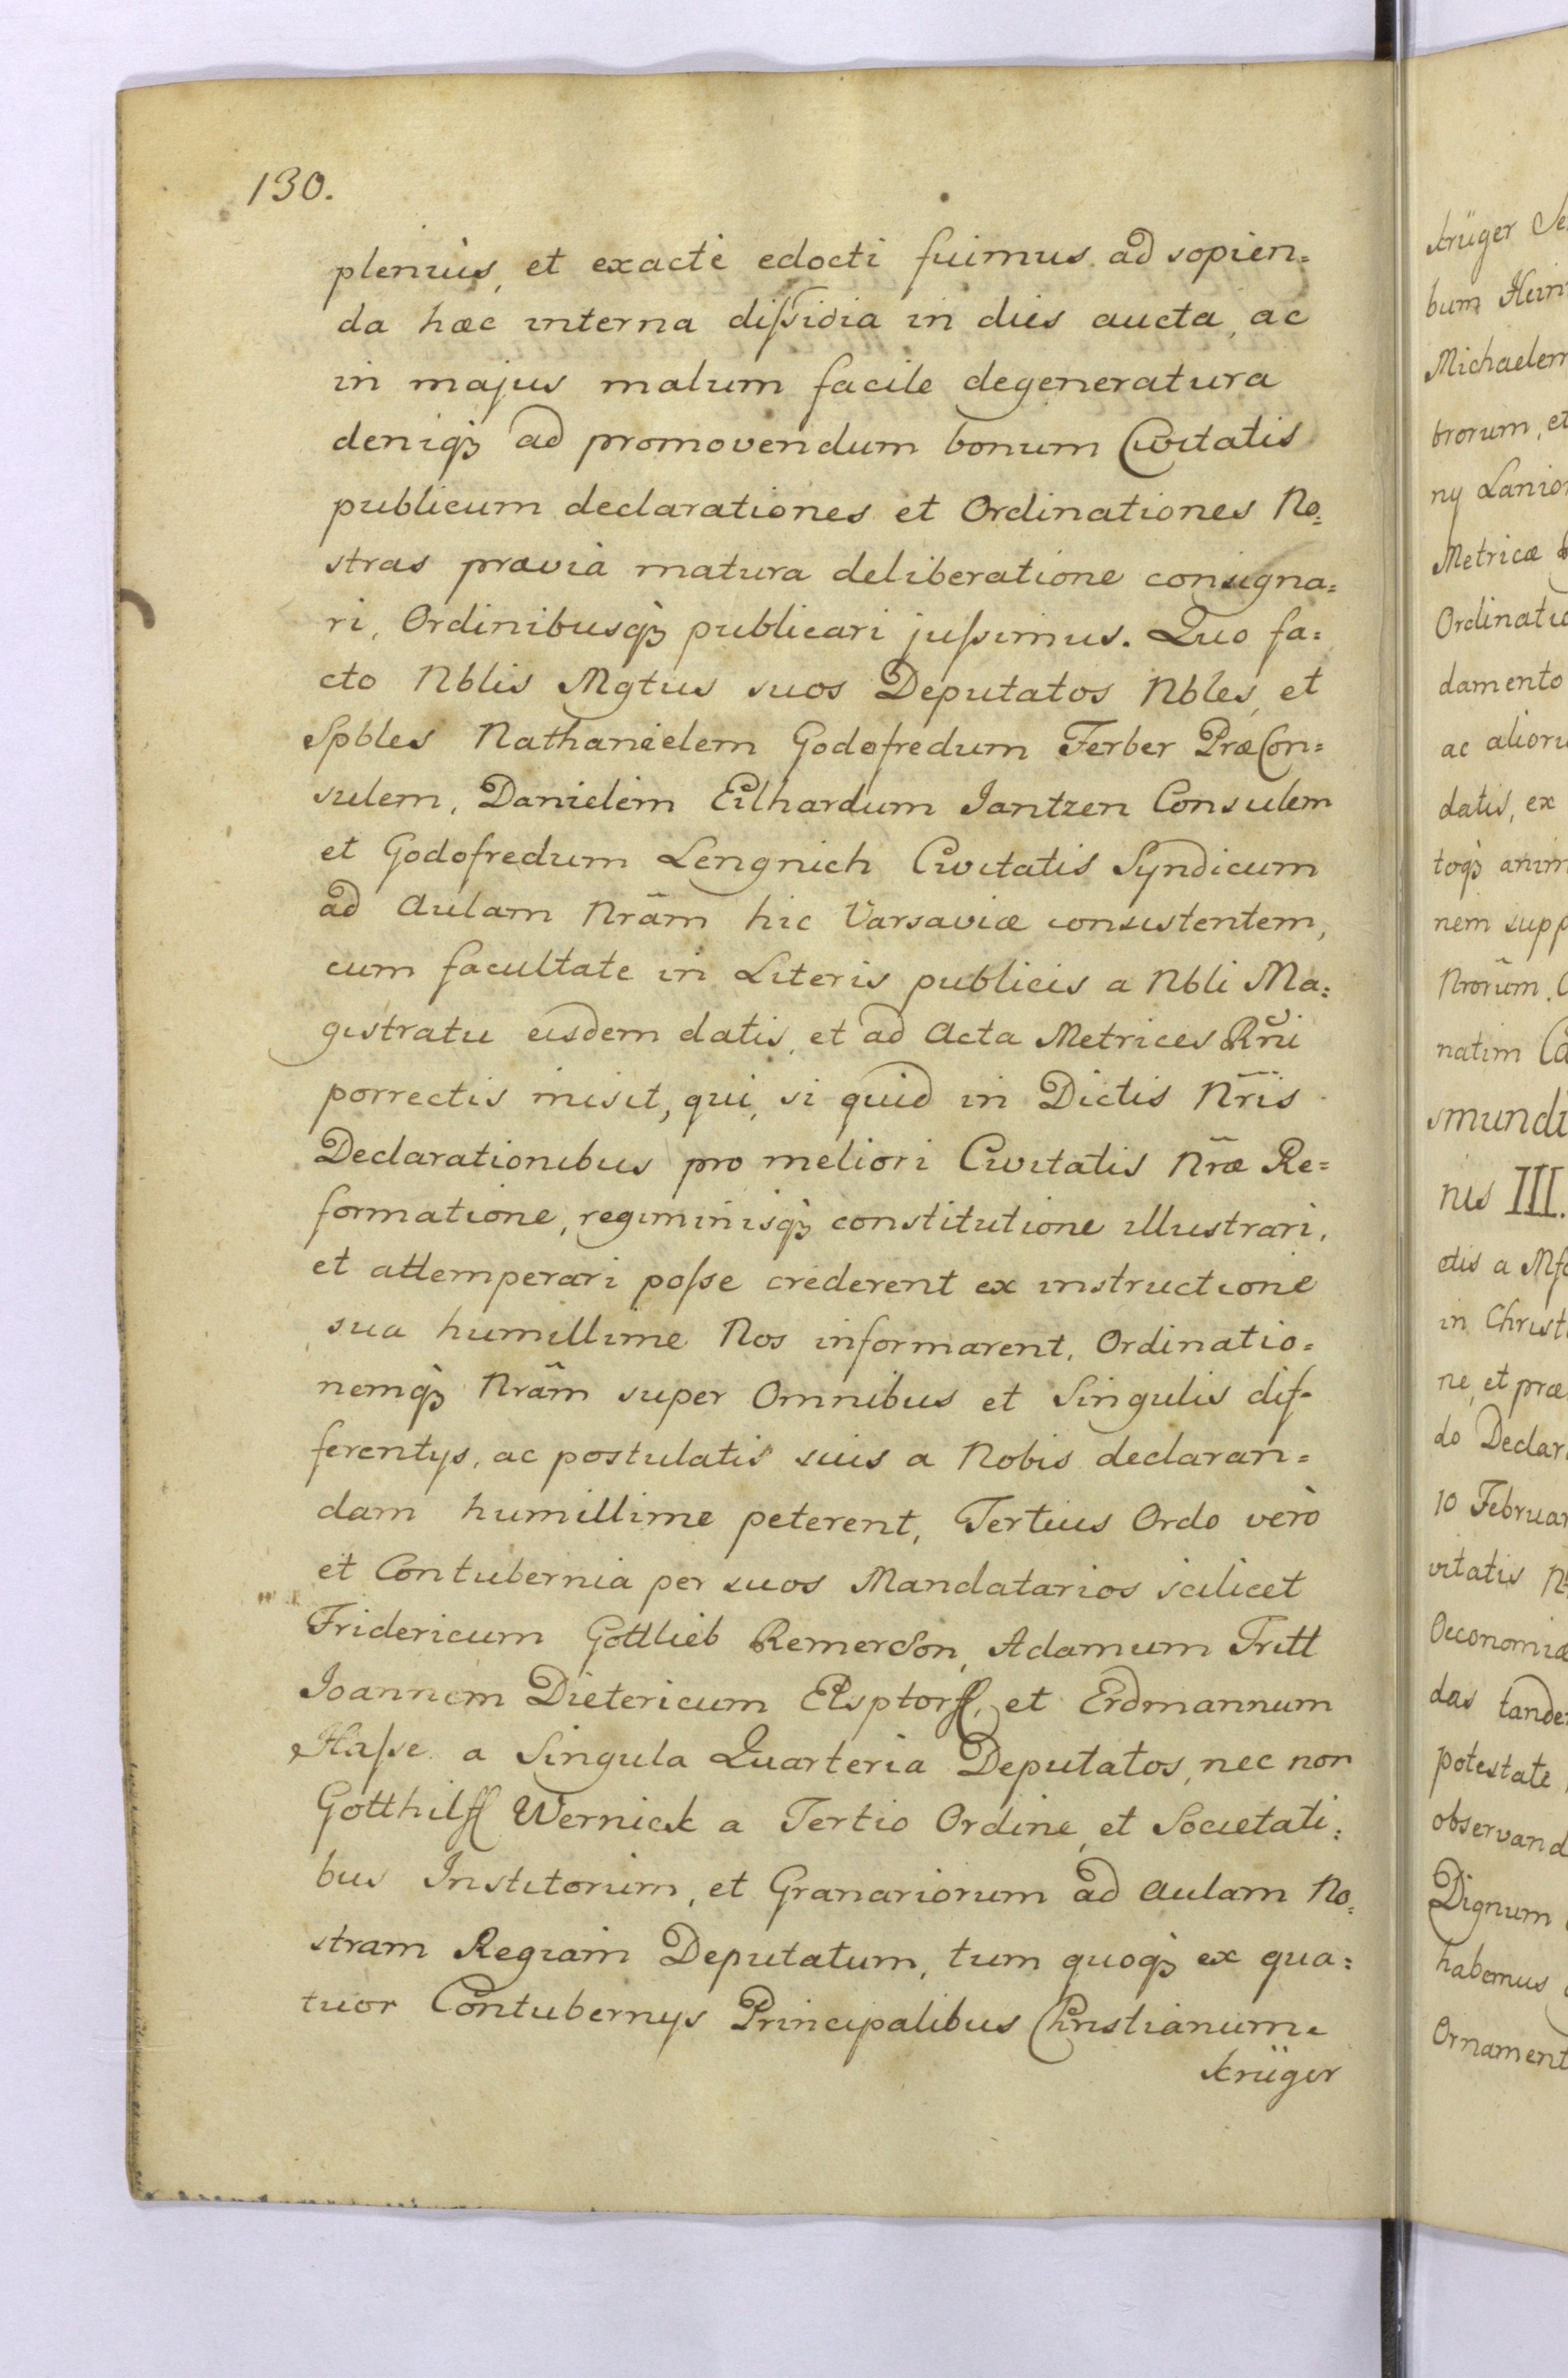 130.
pleniùs, et exactè edocti fuimus ad sopien=
da hæc interna diſsidia in dies aucta, ac
in majus malum facile degeneratura
deniqꝫ ad promovendum bonum Civitatis
publicum declarationes et Ordinationes No=
stras prævià matura deliberatione consigna=
ri, Ordinibusqꝫ publicari juſsimus. Quo fa=
cto Nblis Mgtus suos Deputatos Nbles, et
Spbles Nathanielem Godofredum Ferber PræCon=
sulem, Danielem Eilhardum Jantzen Consulem
et Godofredum Lengnich Civitatis Syndicum
ad Aulam Nrãm hic Varsaviæ consistentem,
cum facultate in Literis publicis a Nbli Ma=
gistratu eisdem datis, et ad Acta Metrices Rñi
porrectis misit, qui, si quid in Dictis Nr̃is
Declarationibus pro meliori Civitatis Nr̃æ Re=
formatione, regiminisqꝫ constitutione illustrari,
et attemperari poſse crederent ex instructione
sua humillime Nos informarent, Ordinatio=
nemqꝫ Nrãm super Omnibus et Singulis dif=
ferentijs, ac postulatis suis a Nobis declaran=
dam humillime peterent, Tertius Ordo verò
et Contubernia per suos Mandatarios scilicet
Fridericum Gottlieb Remerson, Adamum Tritt
Joannem Dietericum Elsptorff, et Erdmannum
Haſse a Singula Quarteria Deputatos, nec non
Gotthilff Wernick a Tertio Ordine, et Societati=
bus Institorum, et Granariorum ad Aulam No=
stram Regiam Deputatum, tum quoqꝫ ex qua=
tuor Contubernijs Principalibus Christianum
Krüger
Krüger Se
bum Hein
Michaelem
brorum, et
nij Lanio
Metricæ
Ordinatio
damento
ac alioru
datis, ex
toqꝫ anim
nem supp
Nrorũm
natim Ca
smundi
nis III.
ctis a
in Christ
ne, et præ
do Declar
10 Februar
vitatis
Oeconomiæ
das tande
potestate
observand
Dignum
habemus
Ornament